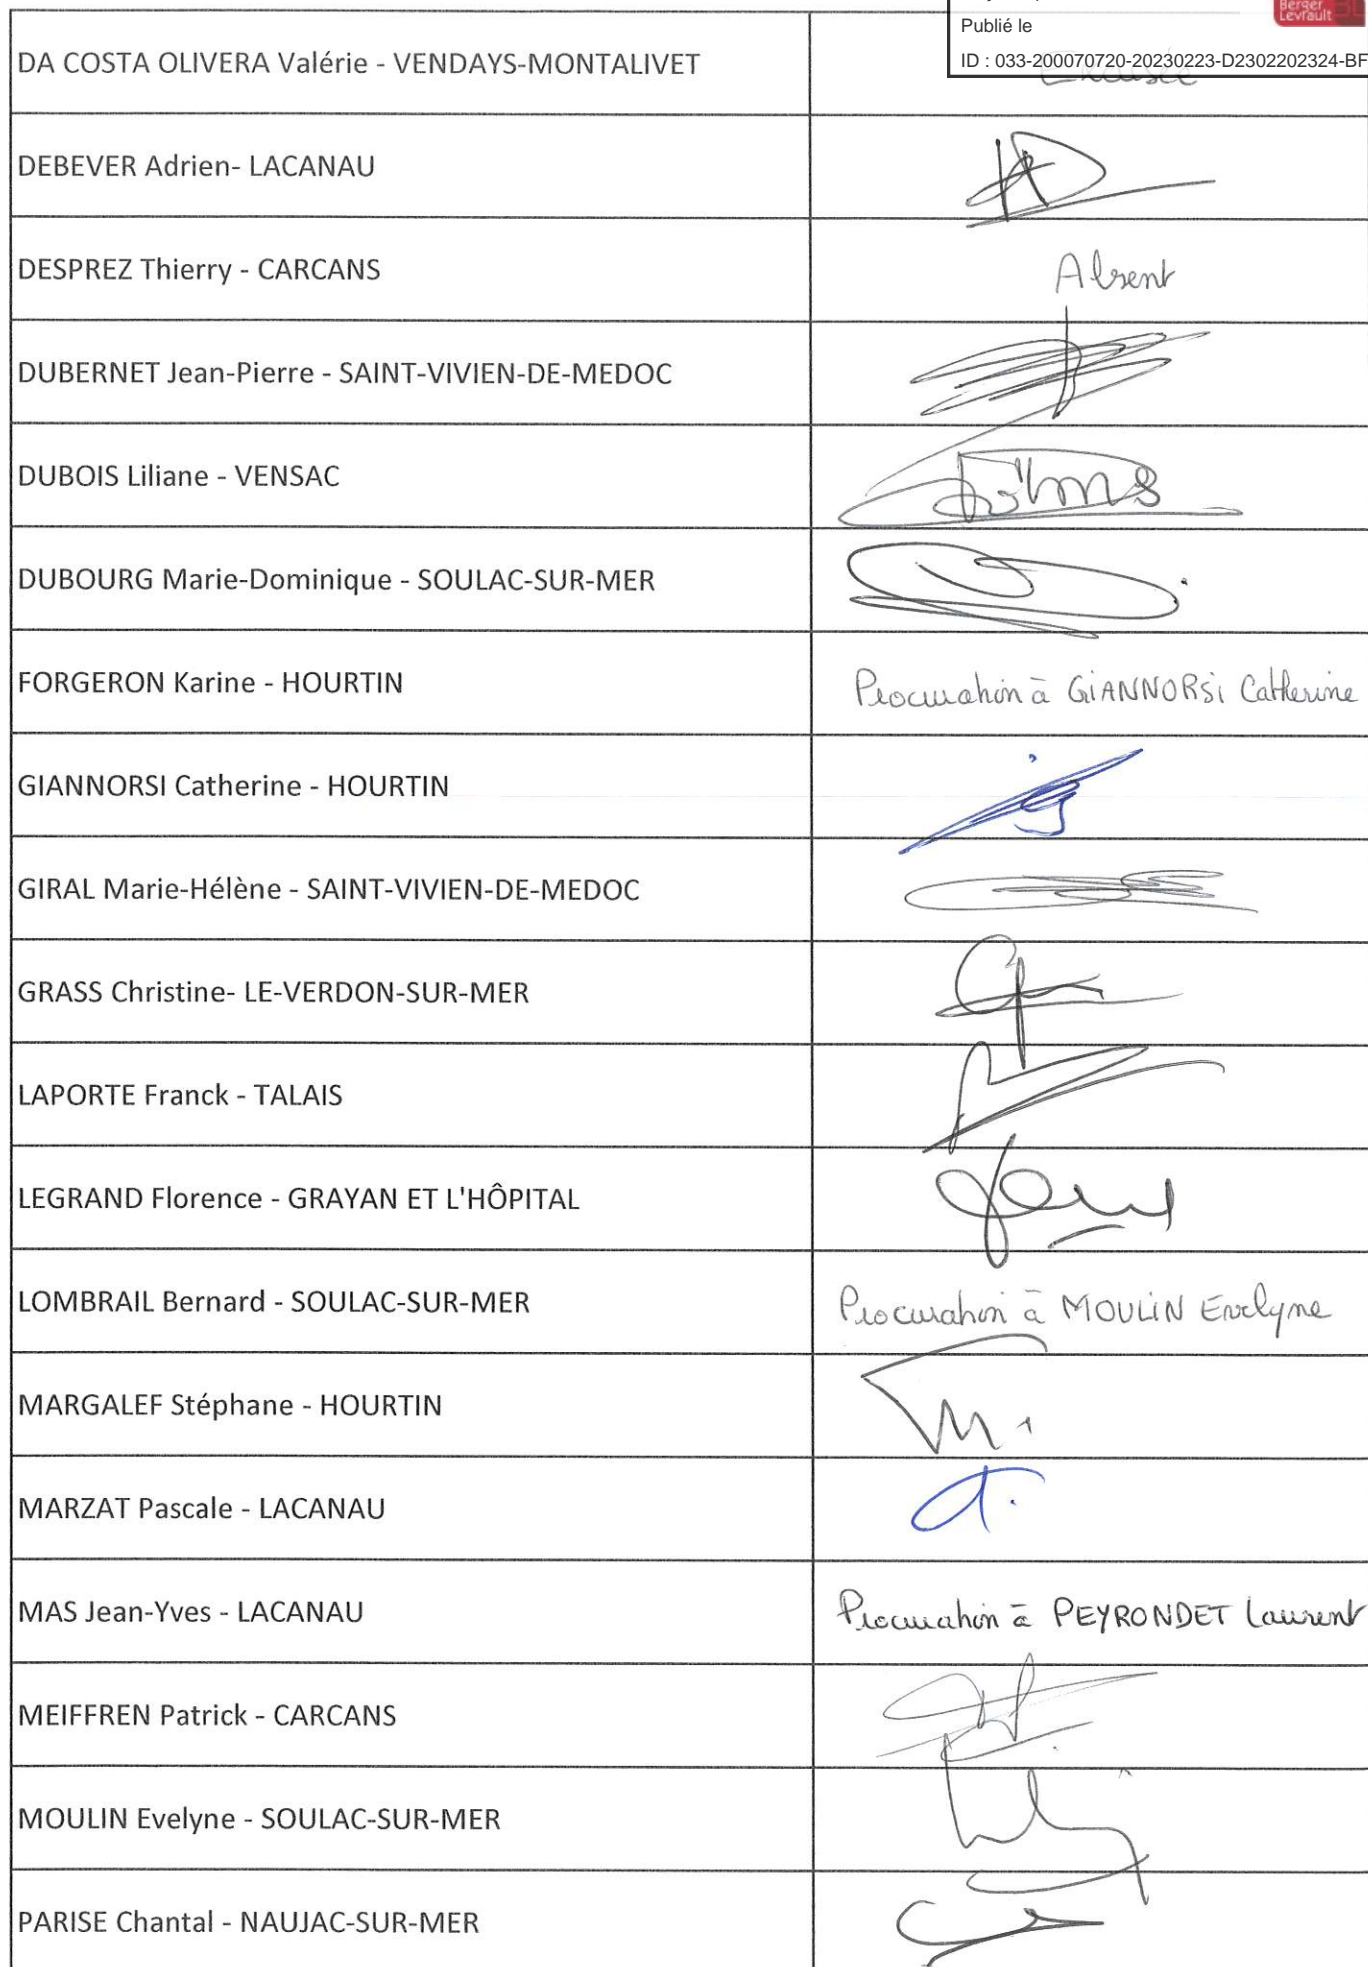 Berger
Levrault
Publié le
ID : 033-200070720-20230223-D2302202324-BF
DA COSTA OLIVERA Valérie - VENDAYS-MONTALIVET
Excusée
DEBEVER Adrien- LACANAU
DESPREZ Thierry - CARCANS
Absent
DUBERNET Jean-Pierre - SAINT-VIVIEN-DE-MEDOC
DUBOIS Liliane - VENSAC
DUBOURG Marie-Dominique - SOULAC-SUR-MER
FORGERON Karine - HOURTIN
Procuration à GIANNORSI Catherine
GIANNORSI Catherine - HOURTIN
GIRAL Marie-Hélène - SAINT-VIVIEN-DE-MEDOC
GRASS Christine- LE-VERDON-SUR-MER
LAPORTE Franck - TALAIS
LEGRAND Florence - GRAYAN ET L'HÔPITAL
LOMBRAIL Bernard - SOULAC-SUR-MER
Procuration à MOULIN Evelyne
MARGALEF Stéphane - HOURTIN
MARZAT Pascale - LACANAU
MAS Jean-Yves - LACANAU
Procuration à PEYRONDET Laurent
MEIFFREN Patrick - CARCANS
MOULIN Evelyne - SOULAC-SUR-MER
PARISE Chantal - NAUJAC-SUR-MER